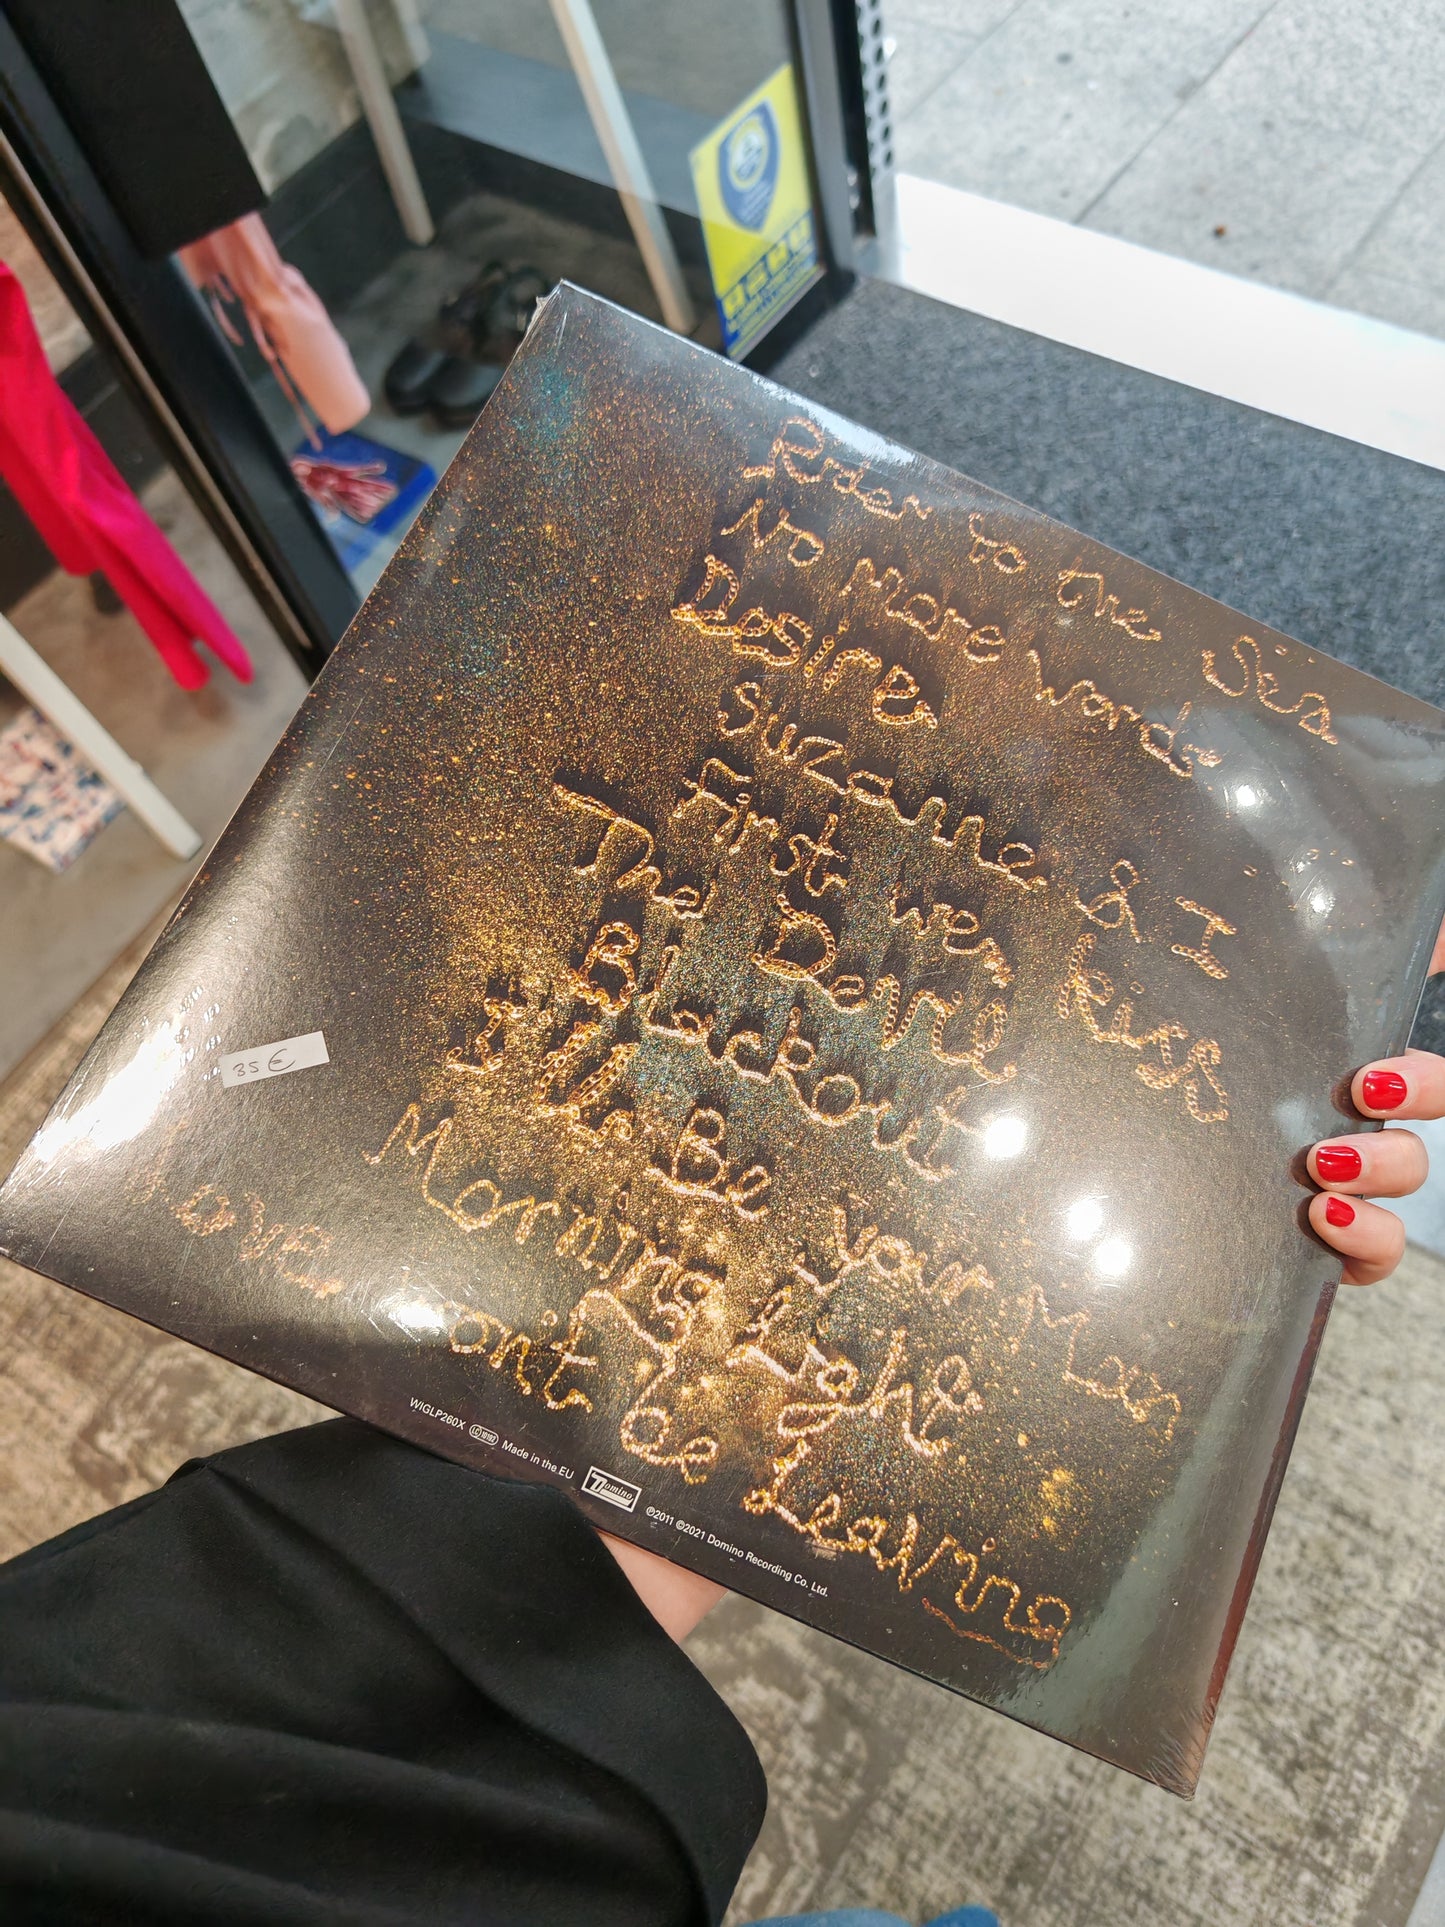 Rider to the Sea
No More words
Desire
Suzanne & I
First we Kiss
The Devil
Blackout
I'll Be your Man
Morning Light
Love won't be Leaving
35 €
WIGLP260X LC 10192 Made in the EU Domino ℗2011 ©2021 Domino Recording Co. Ltd.